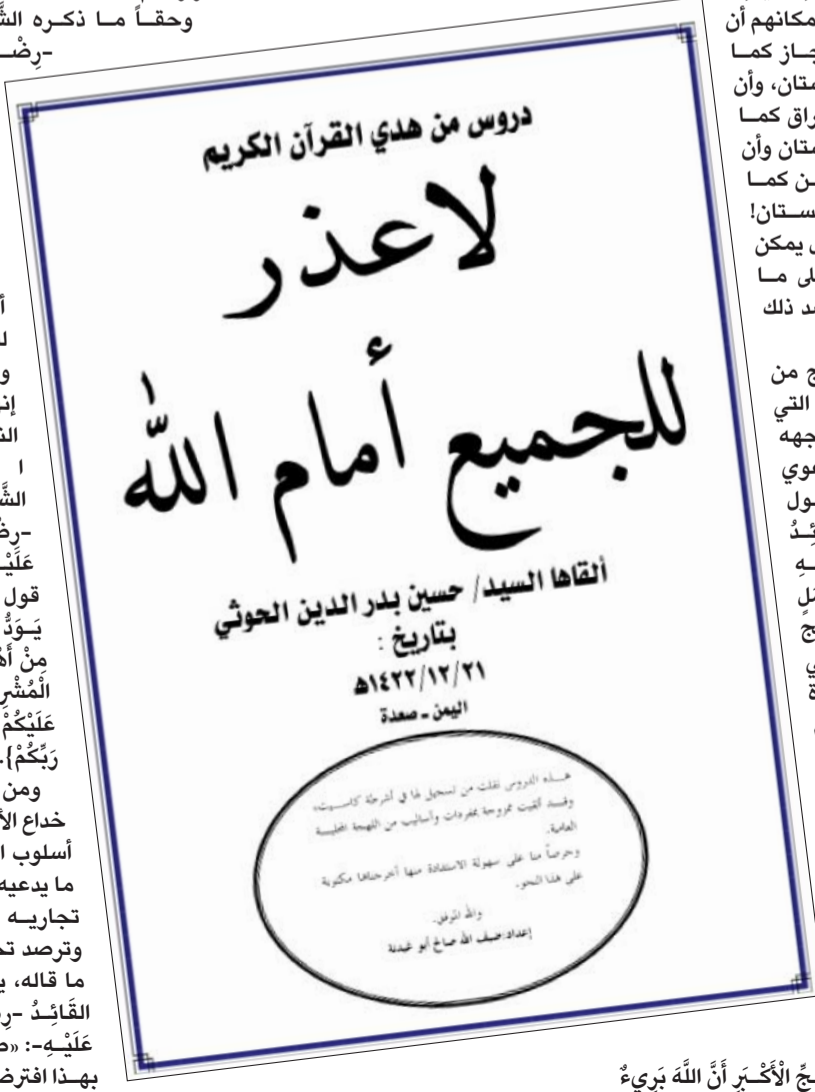 وحقـاً مـا ذكـره
-رِضْـ
مكانهم أن
جـاز كمـا
ستان، وأن
راق كمـا
ستان وأن
ـن كمـا
سـتان!
يمكن
لى مـا
ـد ذلك
ج من
التي
جهه
دروس من هدي القرآن الكريم
لا عذر
للجميع أمام الله
ألقاها السيد/ حسين بدر الدين الحوثي
بتاريخ :
١٤٢٢/١٢/٢١هـ
اليمن ـ صعدة
هـذه الدروس نقلت من تسجيل لها في أشرطة كاسـيت،
وقـد ألقيت ممزوجة بمفردات وأساليب من اللهجة المحليـة
العامية.
وحرصاً منا على سهولة الاستفادة منها أخرجناها مكتوبة
على هذا النحو.
والله الموفق.
إعداد: ضيف الله صالح أبو غيدنة
عَلَيْـ
قول
يَـوَدُّ
مِنْ أَهْ
الْمُشْرِ
عَلَيْكُمْ
رَبِّكُمْ}.
ومن
خداع الأ
أسلوب ا
ما يدعيه
تجاريـه
وترصد تح
ما قاله، ي
القَائِـدُ -رِ
عَلَيْـهِ-: «ص
بهـذا افترض
ـجِّ الْأَكْـبَرِ أَنَّ اللَّهَ بَرِيءٌ